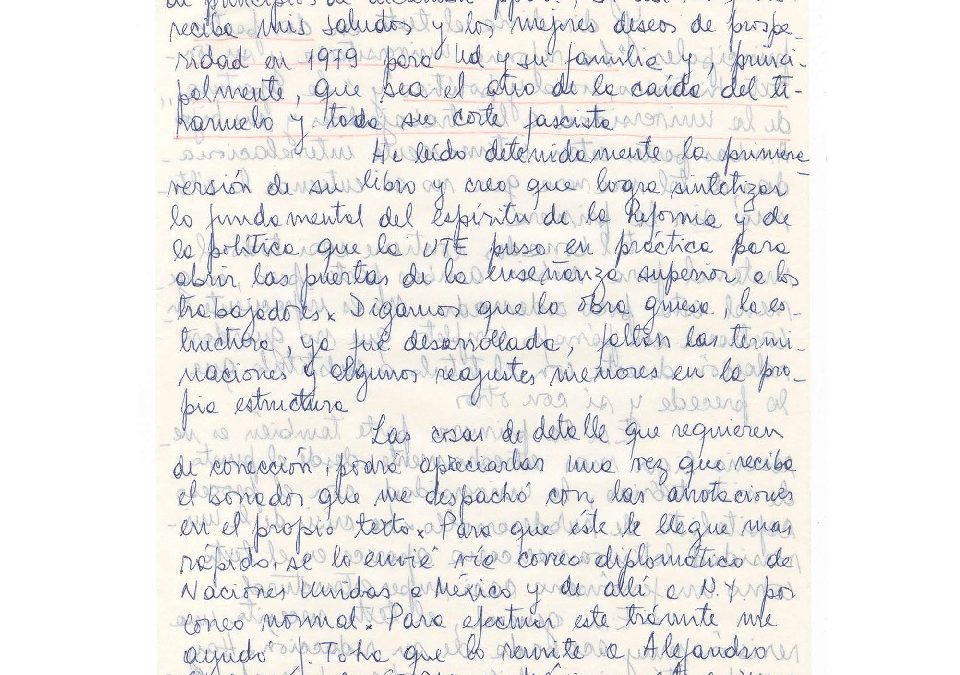 de principios de diciembre ppdo.,
reciba mis saludos y los mejores deseos de prospe-
ridad en 1979 para Ud y su familia y, princi-
palmente, que sea el año de la caída del ti-
ranuelo y toda su corte fascista
He leído detenidamente la primera
versión de su libro y creo que logra, sintetizar
lo fundamental del espíritu de la Reforma y de
la política que la UTE puso en práctica para
abrir las puertas de la enseñanza superior a los
trabajadores. Digamos que la obra gruesa, la es-
tructura, ya fue desarrollada, faltan las termi-
naciones y algunos reajustes menores en la pro-
pia estructura
Las cosas de detalle que requieren
de corrección, podrá apreciarlas una vez que reciba
el borrador que me despachó con las anotaciones
en el propio texto. Para que éste le llegue mas
rápido, se lo envié vía correo diplomático de
Naciones Unidas a México y de allí a N.Y. por
correo normal. Para efectuar este trámite me
ayudó P. Toha que lo remite a Alejandro